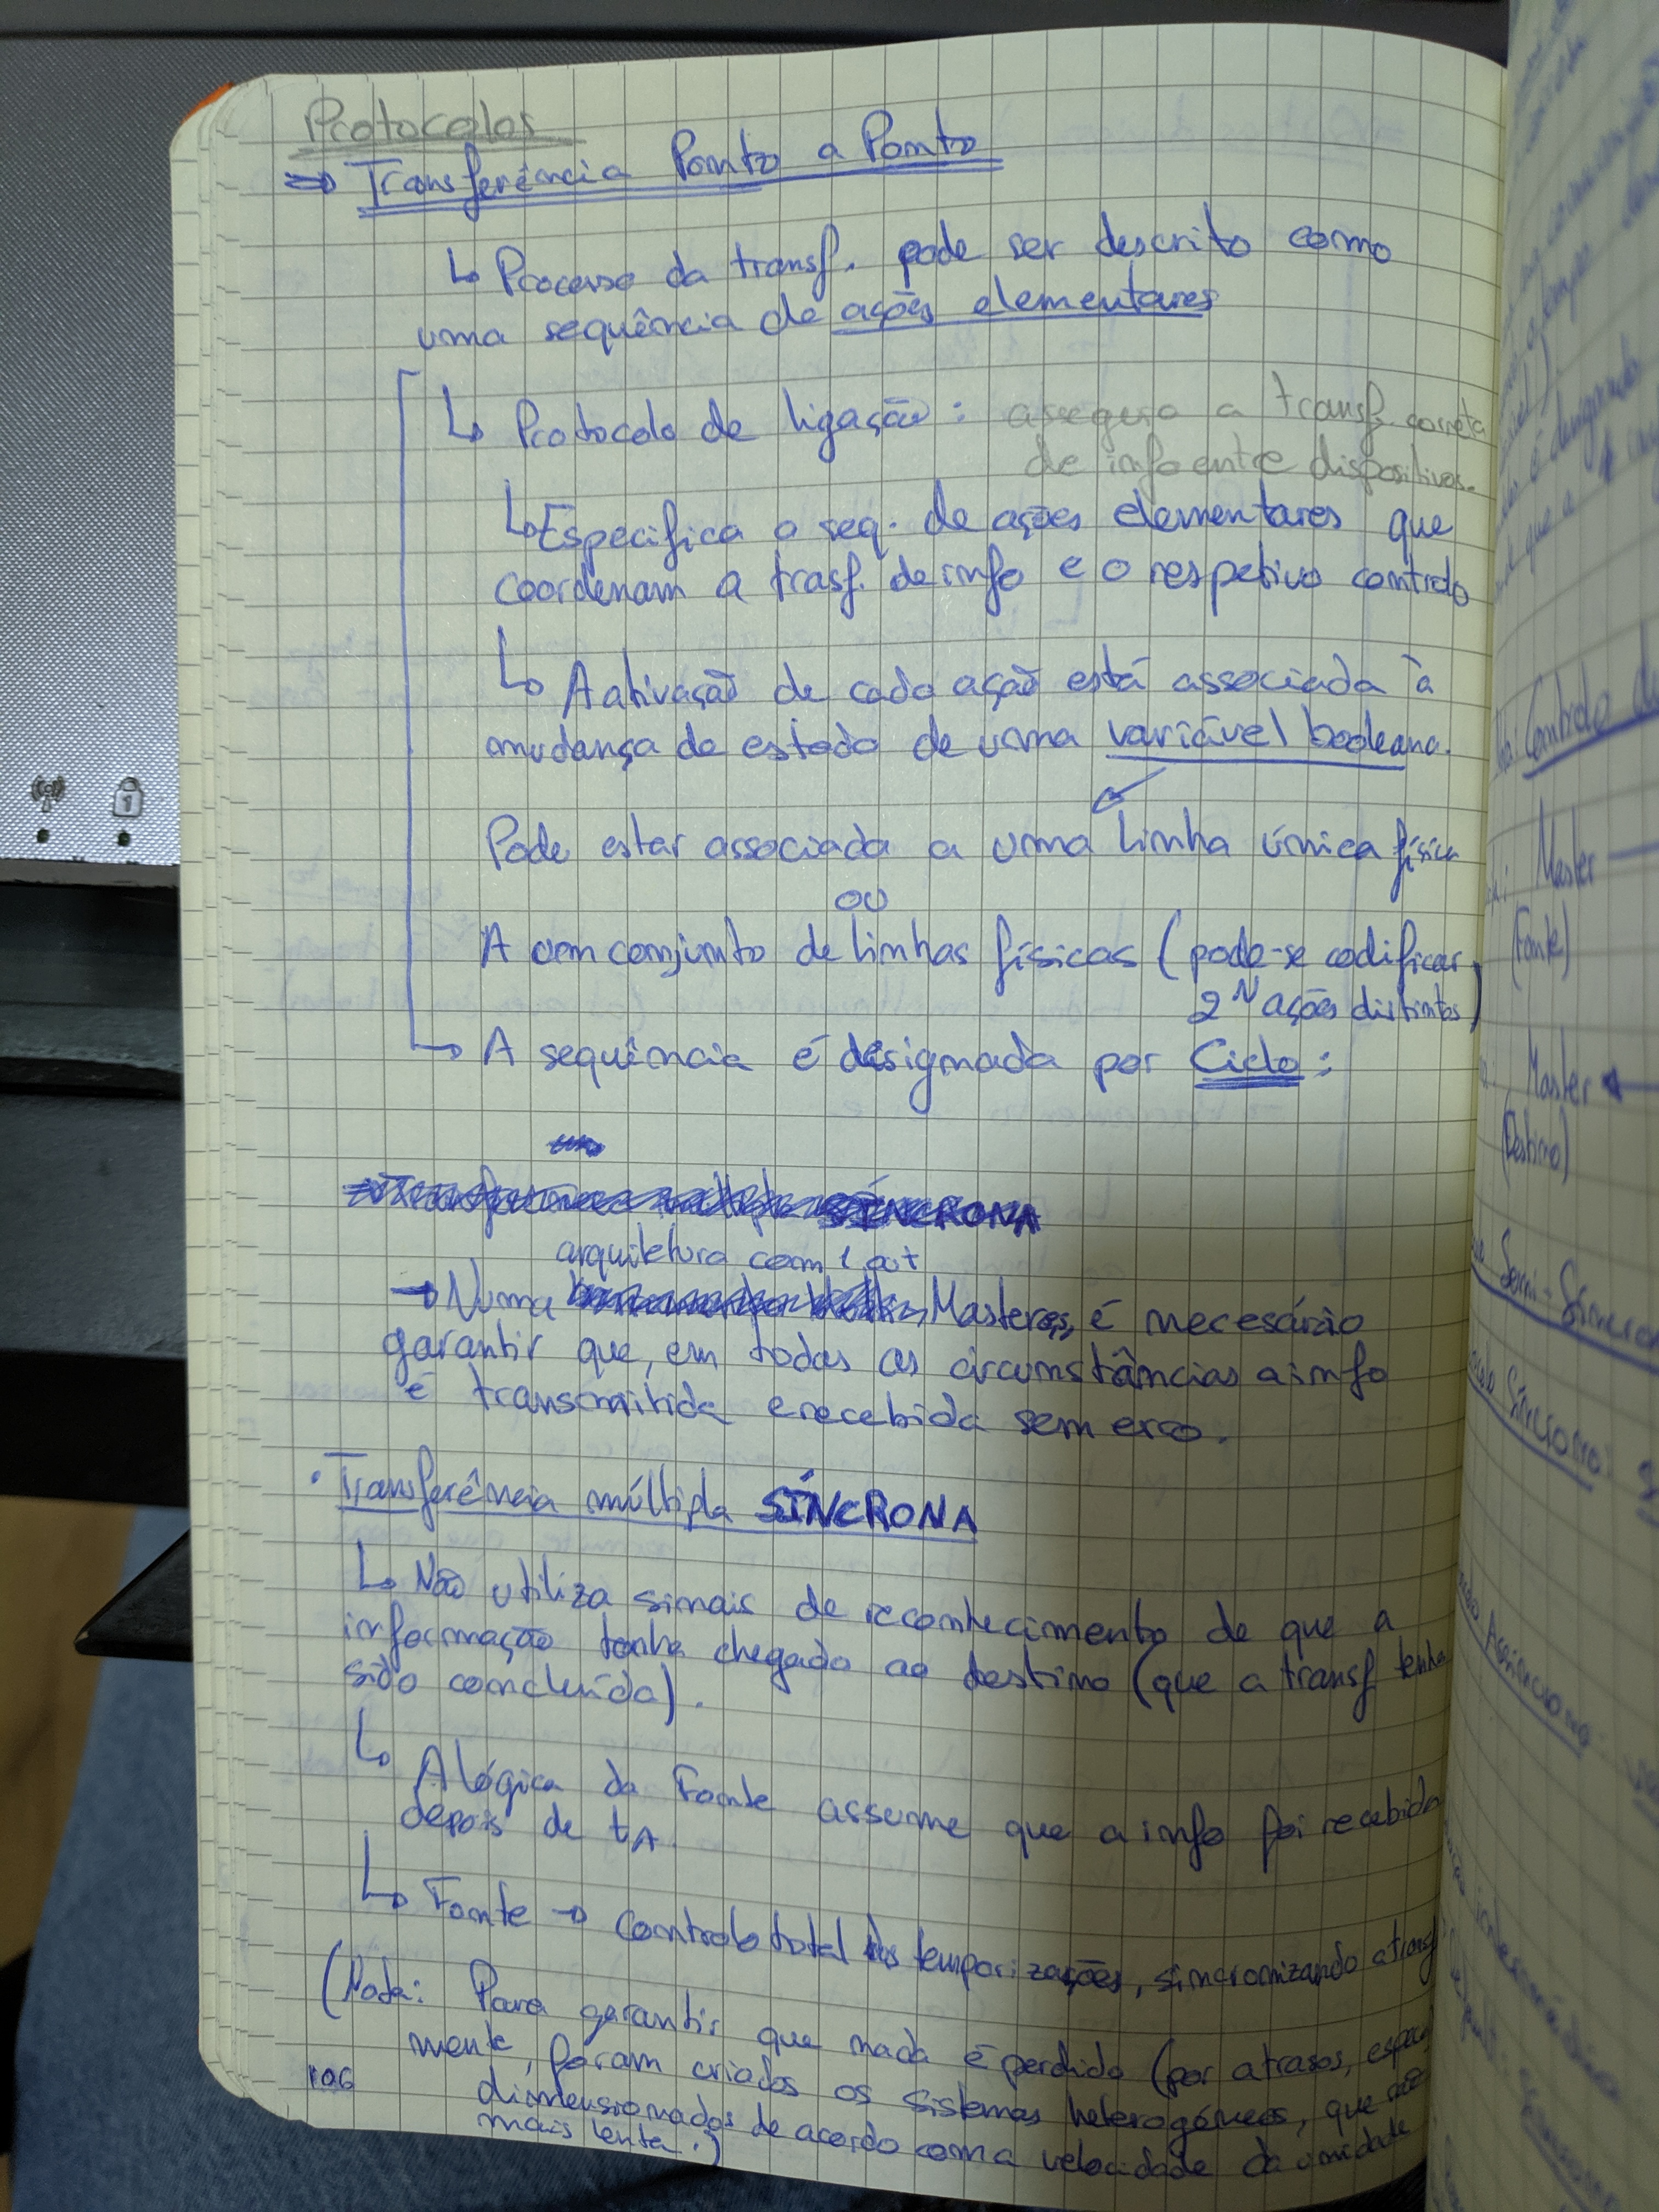 Protocolos
⇒ Transferência Ponto a Ponto
↳ Processo da transf. pode ser descrito como
uma sequência de ações elementares
↳ Protocolo de ligação: assegura a transf. correta
de info entre dispositivos.
↳ Especifica a seq. de ações elementares que
coordenam a trasf. de info e o respetivo controlo
↳ A ativação de cada ação está associada à
mudança de estado de uma variável booleana.
Pode estar associada a uma linha única física
ou
A um conjunto de linhas físicas (pode-se codificar
2^N ações distintas)
↳ A sequência é designada por Ciclo:
SÍNCRONA
arquitetura com 1 out
→ Numa Masteres, é necesário
garantir que, em todas as circumstâncias a info
é transmitida e recebida sem erro.
· Transferência múltipla SÍNCRONA
↳ Não utiliza sinais de reconhecimento de que a
informação tenha chegado ao destino (que a transf tenha
sido concluída).
↳ A lógica da Fonte assume que a info foi recebida
depois de tA.
↳ Fonte → controlo total das temporizações, sincronizando a transf
(Nota: Para garantir que nada é perdido (por atrasos,
mente, foram criados os sistemas heterogéneos, que são
dimensionados de acordo com a velocidade da unidade
mais lenta.)
106
Controlo
Master
(Fonte)
Master
(Destino)
Semi-Síncrono
Síncrono:
Assíncrono